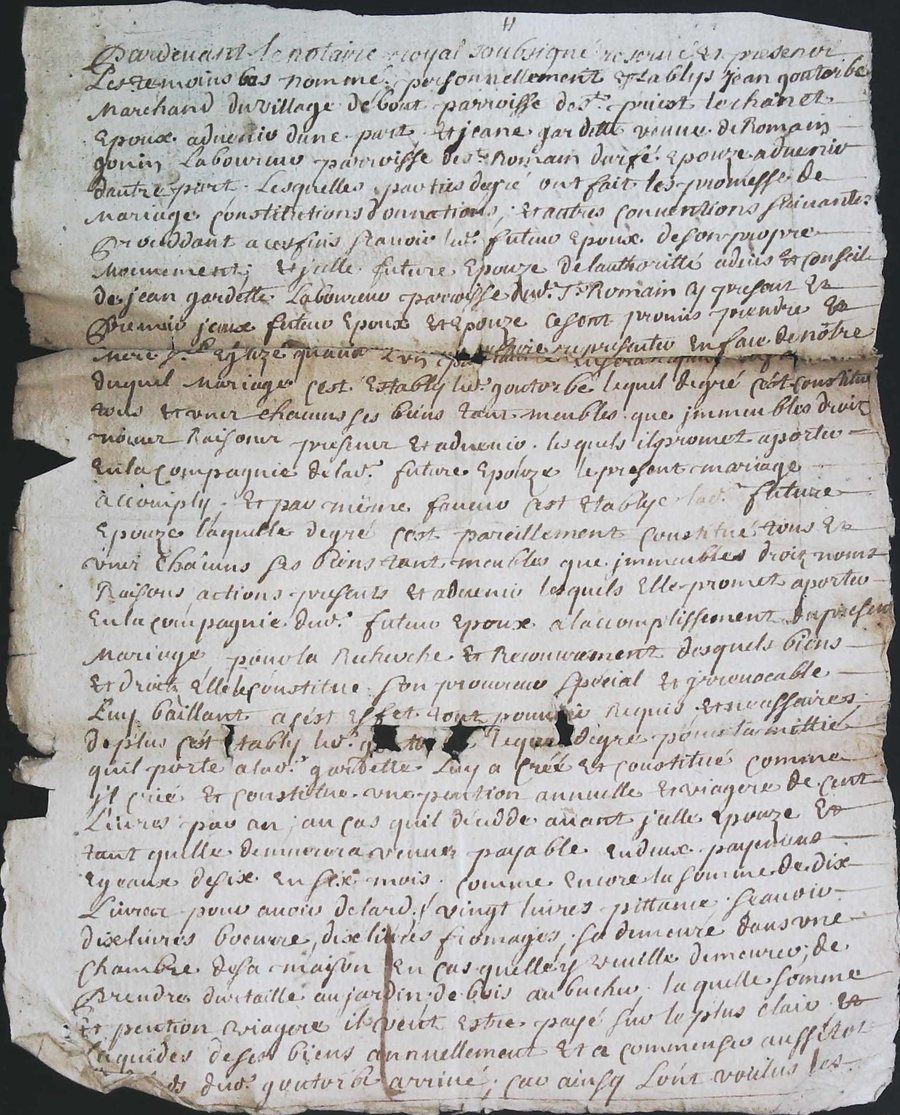 Pardevant le notaire royal soubsigné reservé et presence
Les temoins bas nommé personnellement Establys jean goutorbe
Marchand du village de bout parroisse de st. priest
Epoux advenir dune part Et jeane gardette veuve de Romain
gonin Laboureur parroisse de st. Romain durfé Epouze advenir
dautre part Lesquelles parties degré ont fait les promesse de
Mariage constitutions donnations, Et autres conventions suivantes
Proceddant a ces fins scavoir led. futeur Epoux de son propre
Mouvement, Et jcelle future Epouze de lauthorité advis Et Conseil
de jean gardette Laboureur parroisse dud. St. Romain Cy present Et
jceux futeur Epoux Et Epouze ce sont promis prendre Et
Mere Ste. Eglize quand Lun En face de nôtre
duquel Mariage cest Estably led. goutorbe lequel degré cest constitué
tous Et uns chacuns ses biens tant meubles que jmmeubles droit
noms Raisons presens Et advenir lesquels il promet aporter
En la Compagnie de lad. future Epouze le present mariage
accomply Et par mëme faveur cest Establye lad. future
Epouze laquelle degré cest pareillement constitué tous Et
uns châcuns ses biens tant meubles que jmmeubles droit noms
Raisons actions presents Et advenir lesquels Elle promet aporter
En la compagnie dud. futeur Epoux a laccomplissement du present
Mariage, pour la Recherche Et Recouvrement desquels biens
Et droits Elle le constitue son procureur special Et jrrevocable
Luy baillant a cest Effet tout pouvoir Requis Et necessaires
de plus cest Estably led. lequel degré pour lamittié
quil porte a lad. gardette Luy a créé Et constitué comme
jl créé Et constitue une pention annuelle Et viagere de cent
Livres par an, au cas quil décedde avant jcelle Epouze Et
tant quelle demeurera veuve payable En deux payemens
Egeaux de six En six mois. comme Encore la somme de dix
Livres pour avoir de lard, vingt livres pittance scavoir
dix livres beurre, dix livres fromages, sa demeure dans une
chambre de sa maison En cas quelle y veuille demeurer, de
Prendre au jardin de bois au bucher laquelle somme
Et pention viagere il veut Estre payé sur le plus clair Et
Liquides de ses biens annuellement Et a commencer aussitot
dud. goutorbe arrivé, car ainsy Lont voulus les